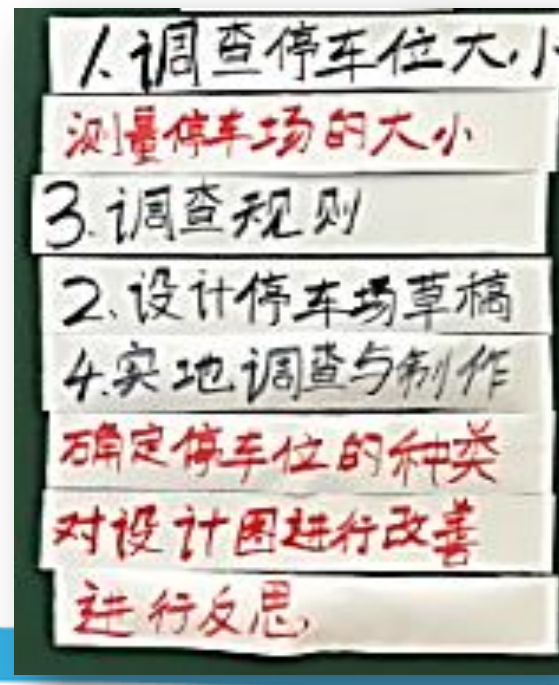 1.调查停车位大小
测量停车场的大小
3.调查规则
2.设计停车场草稿
4.实地调查与制作
确定停车位的种类
对设计图进行改善
进行反思